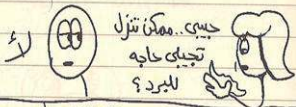 حبيبي.. ممكن تنزل
تجيبلي حاجه
للبرد ؟
لأ